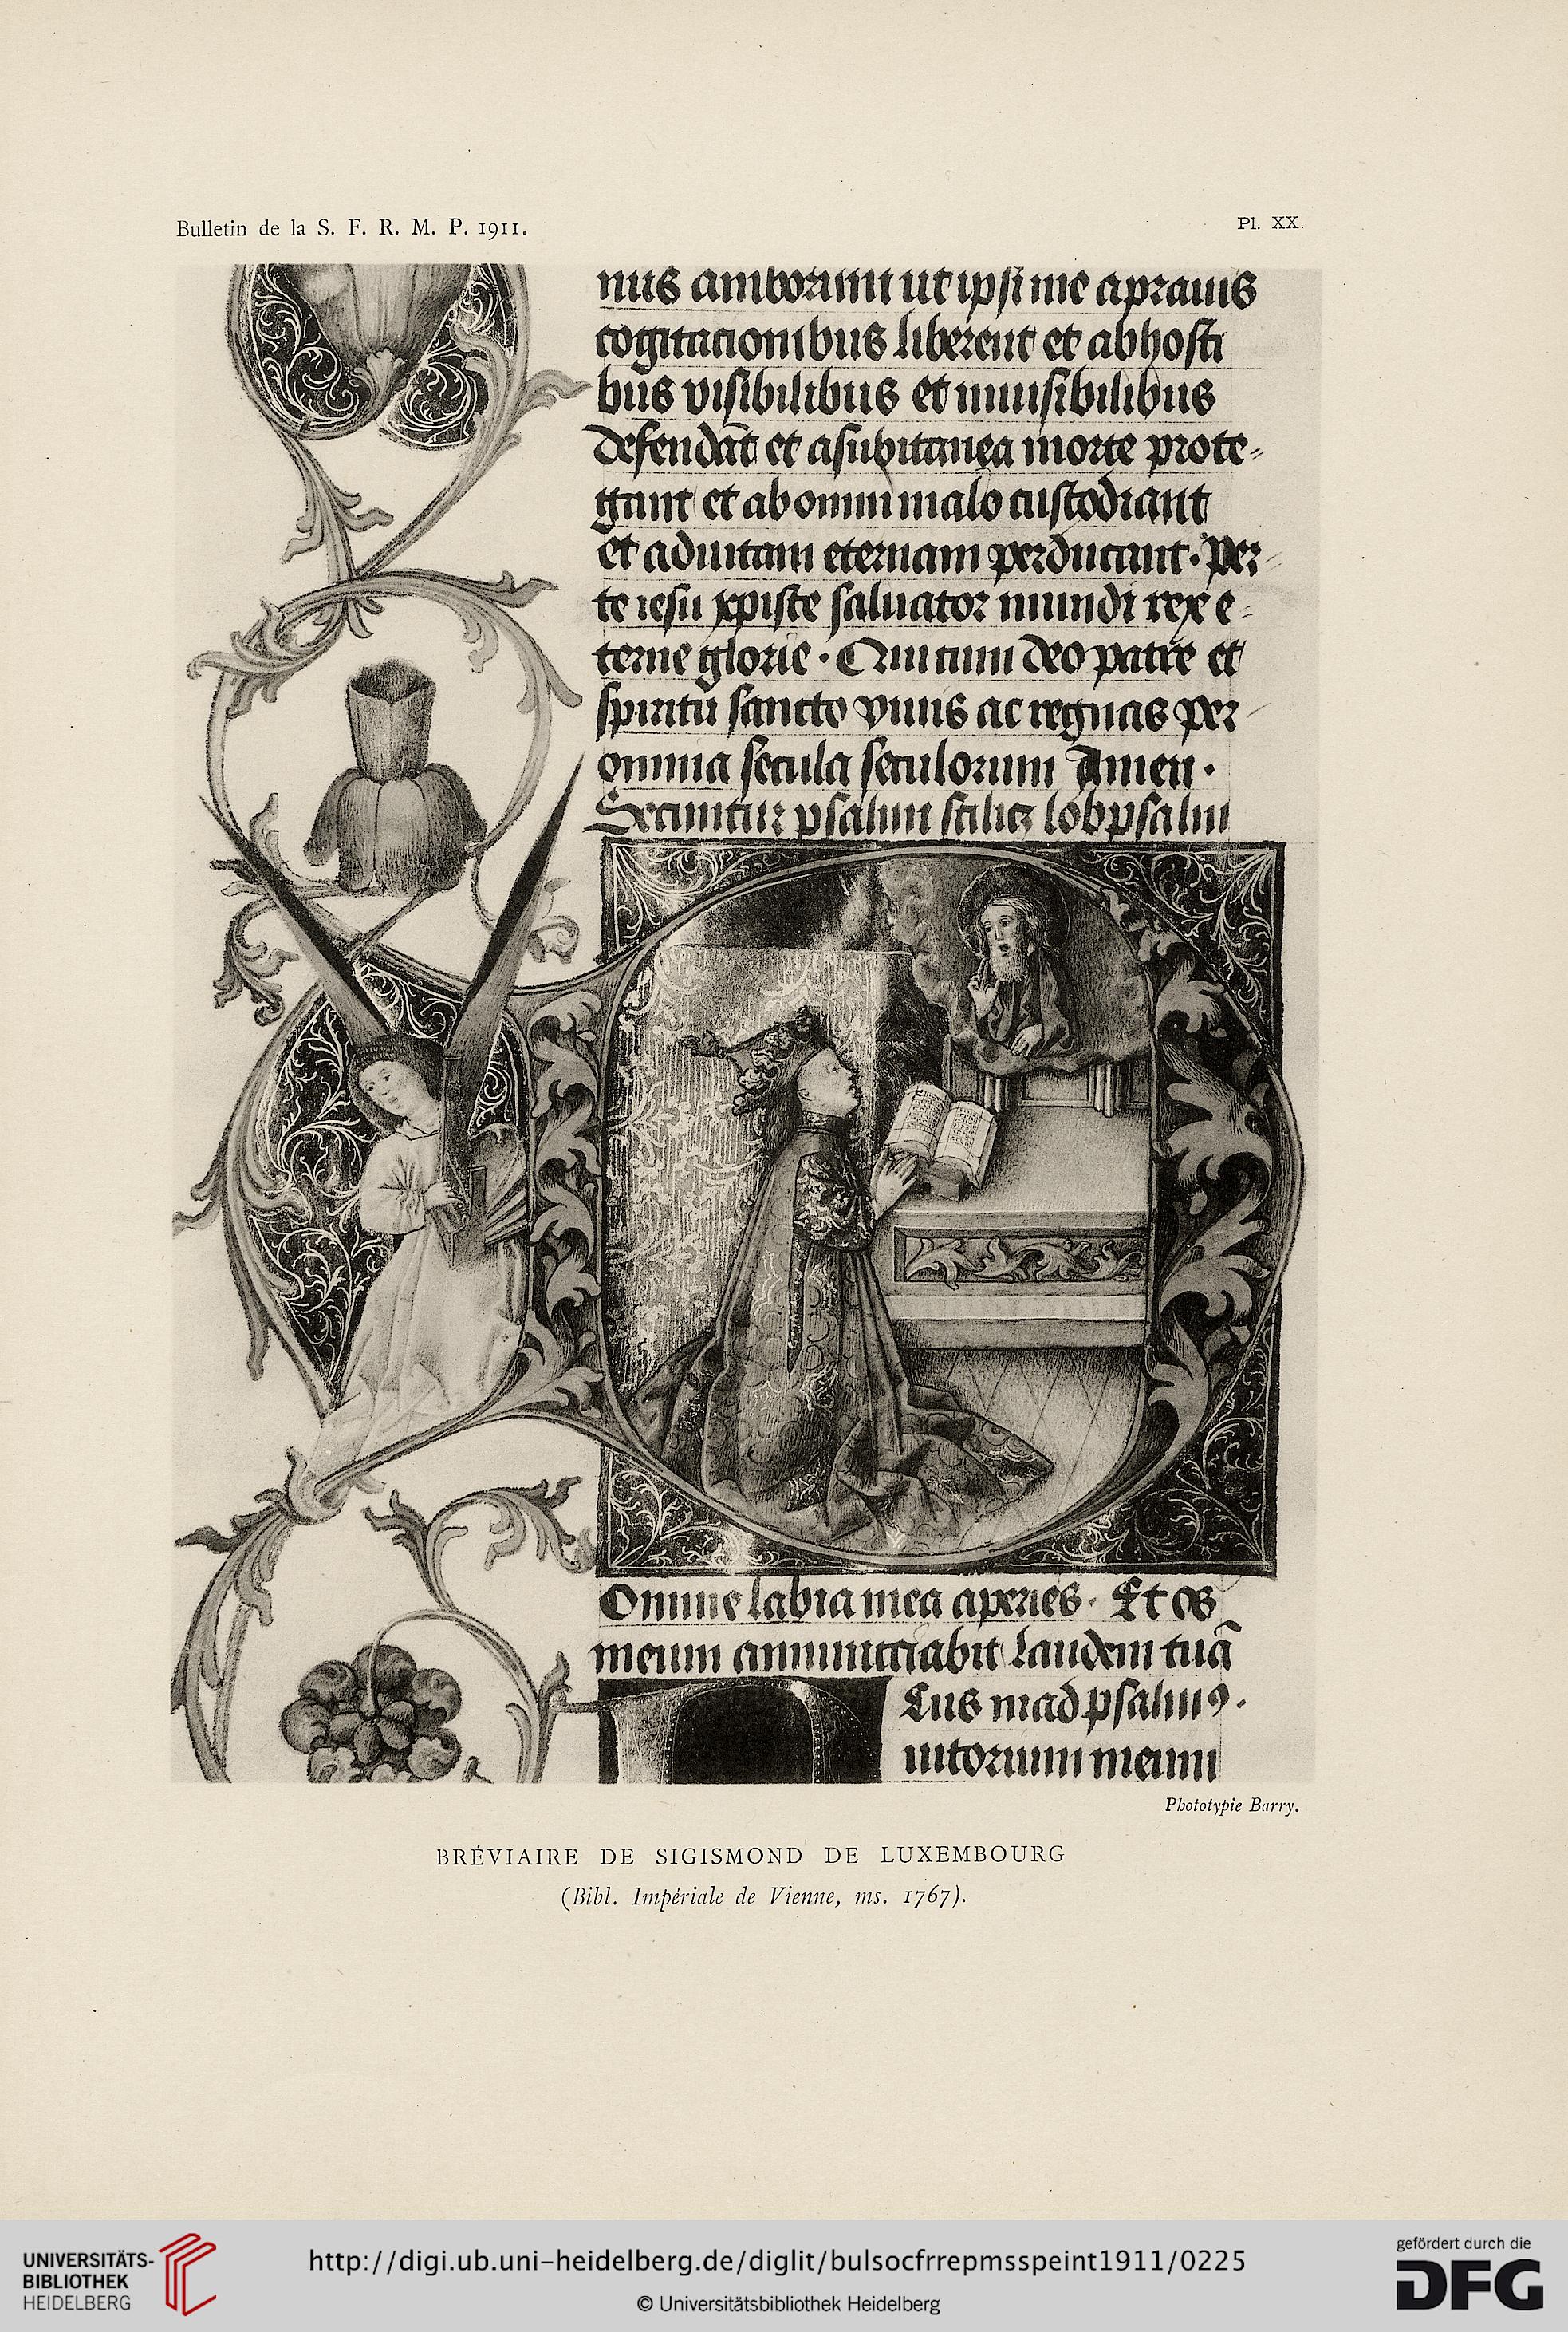 Bulletin de la S. F. R. M. P. 1911.
Pl. XX.
nus amborum ut ipsi me a prauis
cogitacionibus liberent et ab hosti
bus visibilibus et inuisibilibus
defendāt et a subitanea morte prote-
gant et ab omni malo custodiant
et ad uitam eternam perducant. Per-
te iesu xpiste saluator mundi rex e-
terne glorie. Qui cum deo patre et
spiritu sancto viuis ac regnas per-
omnia secula seculorum Amen.
psalmi lobpsalm
Omine labia mea aperies. Et os
meum annuncciabit laudem tuā
psalmus.
iutorium meum
Phototypie Barry.
BRÉVIAIRE DE SIGISMOND DE LUXEMBOURG
(Bibl. Impériale de Vienne, ms. 1767).
UNIVERSITÄTS-
BIBLIOTHEK
HEIDELBERG
http://digi.ub.uni-heidelberg.de/diglit/bulsocfrrepmsspeint1911/0225
© Universitätsbibliothek Heidelberg
gefördert durch die
DFG